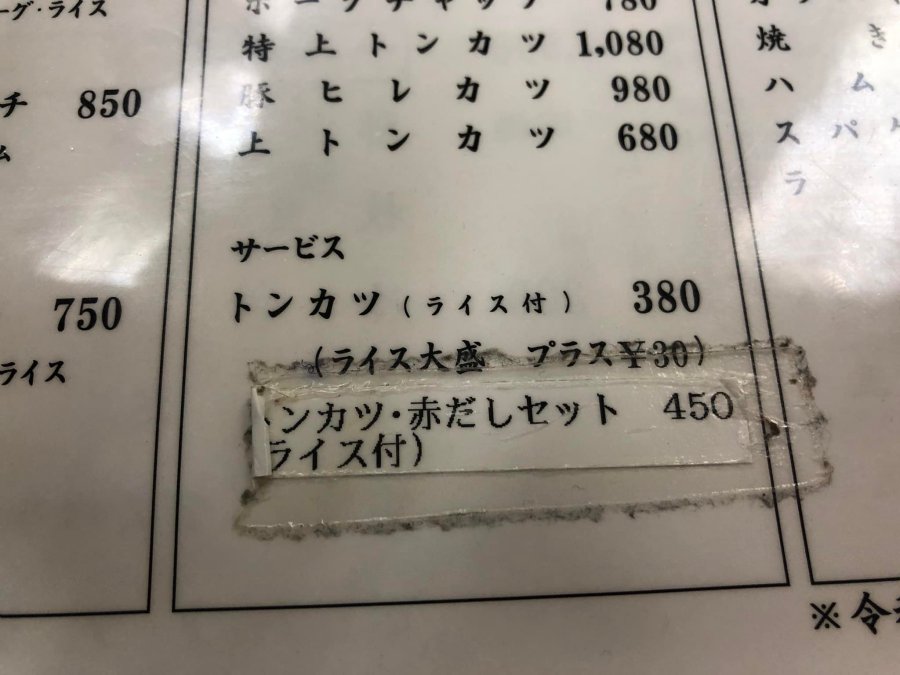 ーグ・ライス
チ 850
ム
750
ライス
ポークチャップ 780
特上トンカツ 1,080
豚ヒレカツ 980
上トンカツ 680
サービス
トンカツ(ライス付) 380
(ライス大盛 プラス¥30)
ンカツ・赤だしセット 450
ライス付)
焼 き
ハム
スパゲ
ラ
※令